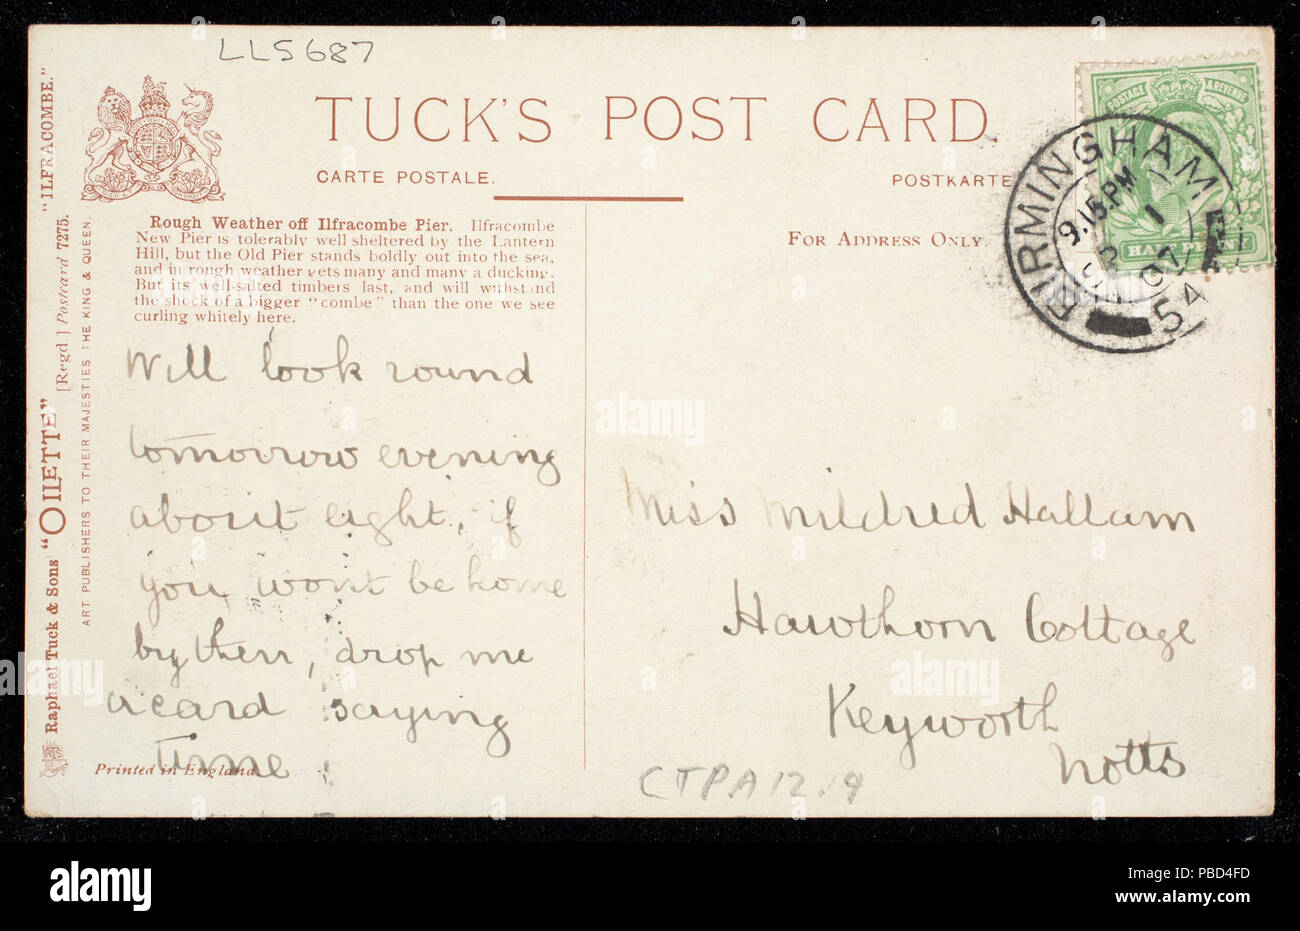 LL5687
TUCK'S POST CARD.
CARTE POSTALE.
POSTKARTE
FOR ADDRESS ONLY.
POSTAGE & REVENUE
HALF PENNY
BIRMINGHAM
9.15 PM
07
54
"ILFRACOMBE."
Raphael Tuck & Sons' "OILETTE" [Regd.] Postcard 7275.
ART PUBLISHERS TO THEIR MAJESTIES THE KING & QUEEN.
Rough Weather off Ilfracombe Pier. Ilfracombe
New Pier is tolerably well sheltered by the Lantern
Hill, but the Old Pier stands boldly out into the sea,
and in rough weather gets many and many a ducking.
But its well-salted timbers last, and will withstand
the shock of a bigger "combe" than the one we see
curling whitely here.
Will look round
tomorrow evening
about eight, if
you wont be home
by then, drop me
a card saying
time.
Printed in England.
Miss Mildred Hallam
Hawthorn Cottage
Keyworth
Notts
CTPA12.9
alamy
alamy
Image ID: PBD4FD
www.alamy.com